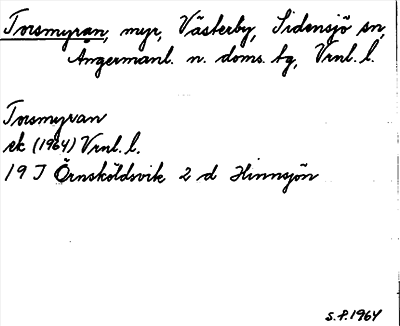 Torsmyran, myr, Västerby, Sidensjö sn,
Ångermanl. n. doms. tg, Vrnl. l.
Torsmyran
ek (1964) Vrnl. l.
19 J Örnsköldsvik 2 d Hinnsjön
S.P. 1964